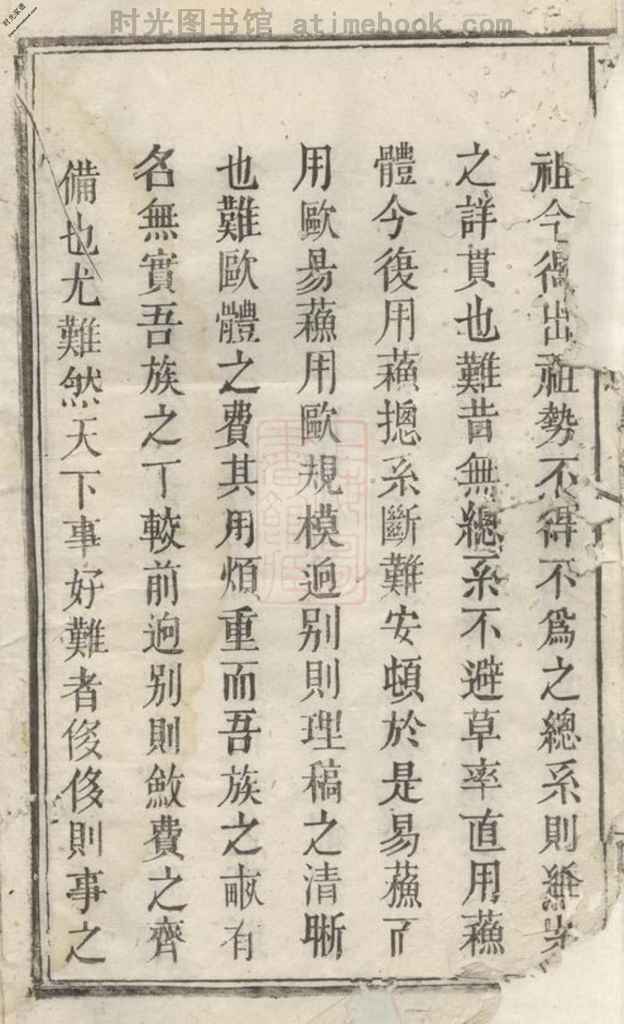 时光图书馆 atimebook.com
祖今得出祖勢不得不爲之總系則
之詳貫也難昔無總系不避草率直用蘓
體今復用蘓摠系斷難安頓於是易蘓而
用歐易蘓用歐規模逈别則理稿之清晰
也難歐體之費其用煩重而吾族之畝有
名無實吾族之丁較前逈别則斂費之齊
備也尤難然天下事好難者俊俊則事之